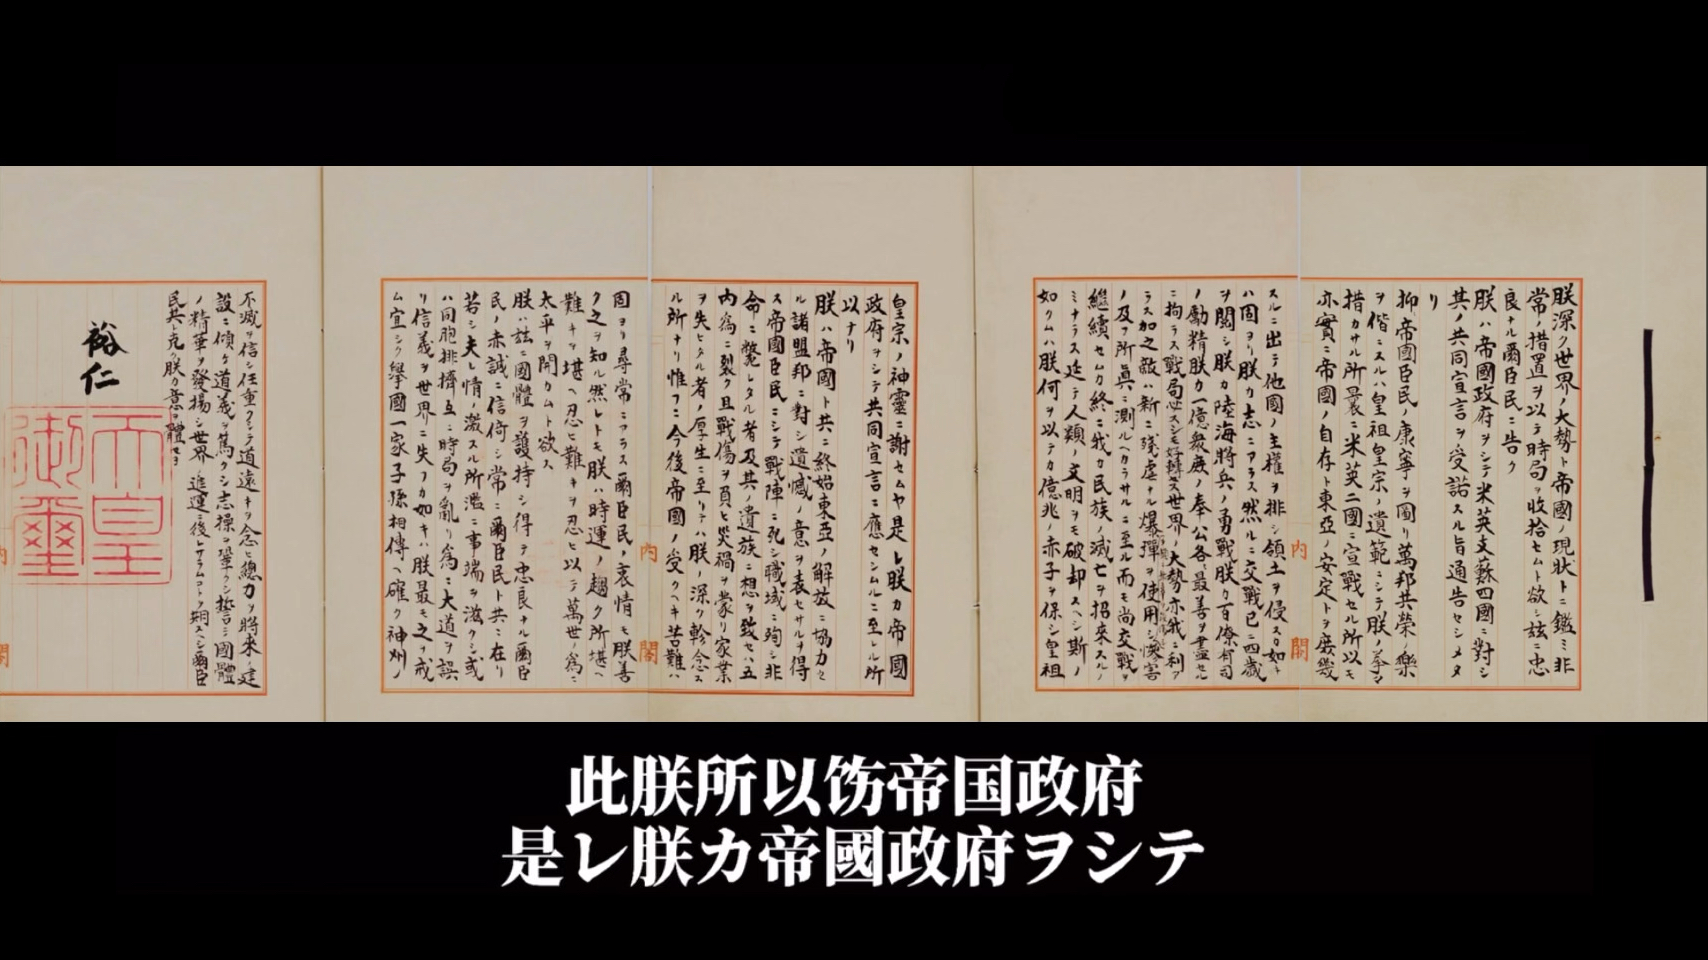 朕深ク世界ノ大勢ト帝國ノ現狀トニ鑑ミ非
常ノ措置ヲ以テ時局ヲ收拾セムト欲シ茲ニ忠
良ナル爾臣民ニ告ク
朕ハ帝國政府ヲシテ米英支蘇四國ニ對シ
其ノ共同宣言ヲ受諾スル旨通告セシメタ
リ
抑〻帝國臣民ノ康寧ヲ圖リ萬邦共榮ノ樂
ヲ偕ニスルハ皇祖皇宗ノ遺範ニシテ朕ノ拳〻
措カサル所曩ニ米英二國ニ宣戰セル所以モ
亦實ニ帝國ノ自存ト東亞ノ安定トヲ庶幾
内閣
スルニ出テ他國ノ主權ヲ排シ領土ヲ侵スカ如キ
ハ固ヨリ朕カ志ニアラス然ルニ交戰已ニ四歲
ヲ閱シ朕カ陸海將兵ノ勇戰朕カ百僚有司
ノ勵精朕カ一億衆庶ノ奉公各〻最善ヲ盡セル
ニ拘ラス戰局必スシモ好轉セス世界ノ大勢亦我ニ利ア
ラス加之敵ハ新ニ殘虐ナル爆彈ヲ使用シ慘害
ノ及フ所眞ニ測ルヘカラサルニ至ル而モ尚交戰ヲ
繼續セムカ終ニ我カ民族ノ滅亡ヲ招來スルノ
ミナラス延テ人類ノ文明ヲモ破却スヘシ斯ノ
如クムハ朕何ヲ以テカ億兆ノ赤子ヲ保シ皇祖
皇宗ノ神靈ニ謝セムヤ是レ朕カ帝國
政府ヲシテ共同宣言ニ應セシムルニ至レル所
以ナリ
朕ハ帝國ト共ニ終始東亞ノ解放ニ協力セ
ル諸盟邦ニ對シ遺憾ノ意ヲ表セサルヲ得
ス帝國臣民ニシテ戰陣ニ死シ職域ニ殉シ非
命ニ斃レタル者及其ノ遺族ニ想ヲ致セハ五
內爲ニ裂ク且戰傷ヲ負ヒ災禍ヲ蒙リ家業
ヲ失ヒタル者ノ厚生ニ至リテハ朕ノ深ク軫念ス
ル所ナリ惟フニ今後帝國ノ受クヘキ苦難ハ
内閣
固ヨリ尋常ニアラス爾臣民ノ衷情モ朕善
ク之ヲ知ル然レトモ朕ハ時運ノ趨ク所堪ヘ
難キヲ堪ヘ忍ヒ難キヲ忍ヒ以テ萬世ノ爲ニ
太平ヲ開カムト欲ス
朕ハ茲ニ國體ヲ護持シ得テ忠良ナル爾臣
民ノ赤誠ニ信倚シ常ニ爾臣民ト共ニ在リ
若シ夫レ情ノ激スル所濫ニ事端ヲ滋クシ或
ハ同胞排擠互ニ時局ヲ亂リ爲ニ大道ヲ誤
リ信義ヲ世界ニ失フカ如キハ朕最モ之ヲ戒
ム宜シク擧國一家子孫相傳ヘ確ク神州ノ
不滅ヲ信シ任重クシテ道遠キヲ念ヒ總力ヲ將來ノ建
設ニ傾ケ道義ヲ篤クシ志操ヲ鞏クシ誓テ國體
ノ精華ヲ發揚シ世界ノ進運ニ後レサラムコトヲ期スヘシ爾臣
民其レ克ク朕カ意ヲ體セヨ
裕仁
天皇御璽
此朕所以饬帝国政府
是レ朕カ帝國政府ヲシテ